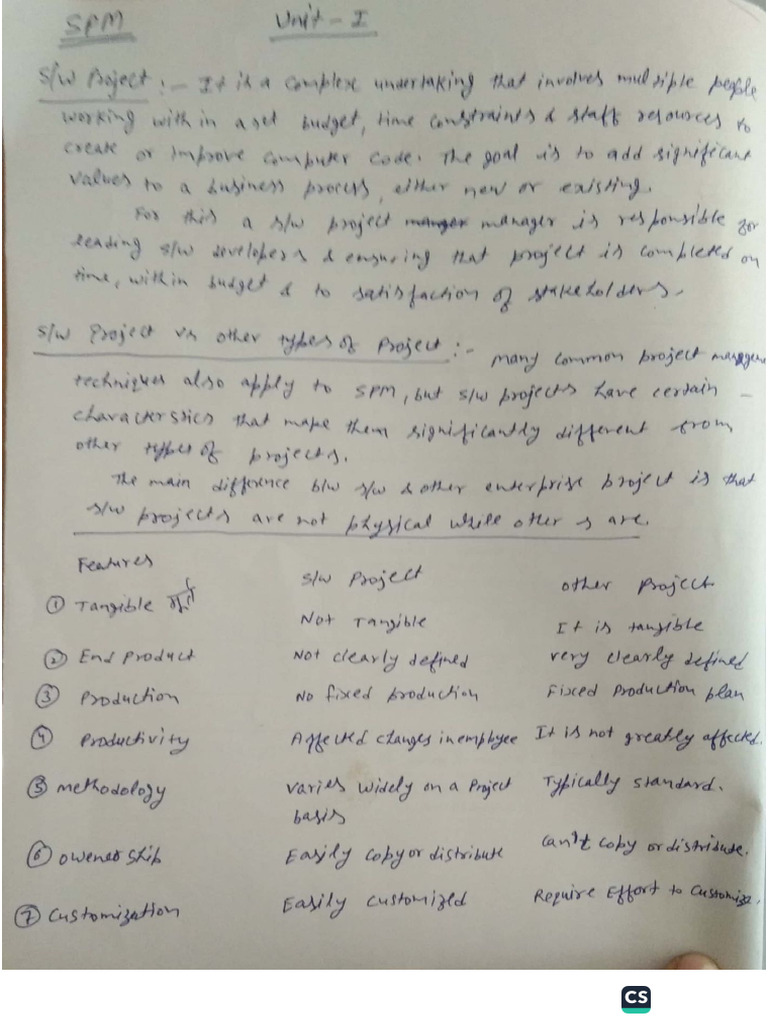 SPM Unit - I
S/w Project :- It is a complex undertaking that involves multiple people
working with in a set budget, time constraints & staff resources to
create or improve computer code. The goal is to add significant
values to a business process, either new or existing.
For this a s/w project manager is responsible for
leading s/w developers & ensuring that project is completed on
time, within budget & to satisfaction of stakeholders.
S/w Project vs other types of Project :- many common project
techniques also apply to SPM, but s/w projects have certain -
characterstics that make them significantly different from
other types of projects.
The main difference b/w s/w & other enterprise project is that
s/w projects are not physical while other s are.
Features S/w Project other Project
① Tangible मूर्त Not Tangible It is tangible
② End Product Not clearly defined very clearly defined
③ Production No fixed production Fixed Production plan
④ Productivity Affected changes in employee It is not greatly affected.
⑤ methodology varies widely on a Project Typically standard.
basis
⑥ owenership Easily copy or distribute can't copy or distribute.
⑦ Customization Easily customized Require Effort to customize.
CS